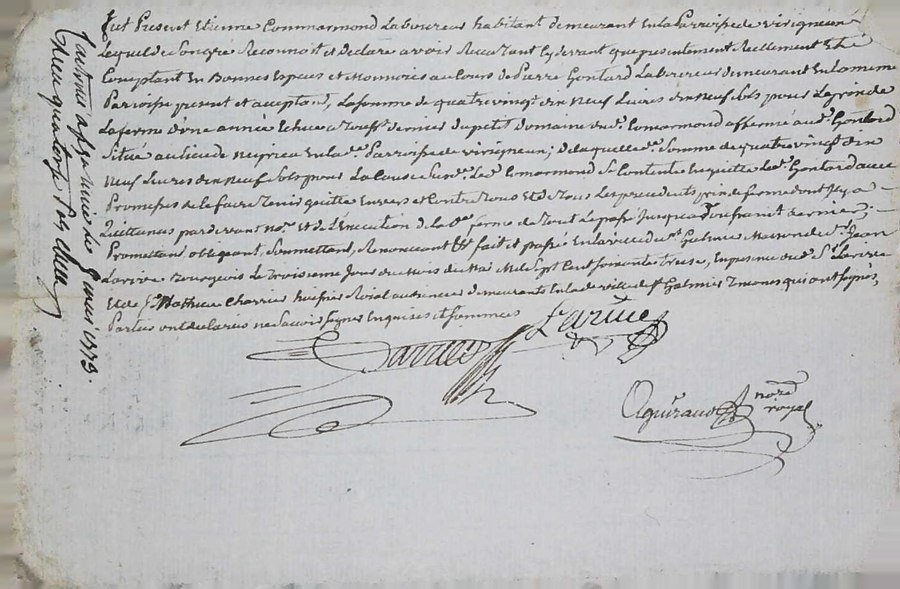 fut Present Etienne Commarmond Laboureur habitant demeurant En la Parroisse de virigneux
Lequel de Son gre Reconnoit et Declare avoir Reçu tant cy devant que presentement Reellement Et
Comptant En Bonnes Especes et Monnoies au Cours de Pierre Gontard Laboureur demeurant En la meme
Parroisse present et acceptant, La Somme de quatre vingt dix Neuf Livres dix Neuf Sols pour
La ferme d'une année Echue a dernier du petit Domaine du dt Commarmond affermé aud. Gontard
Situé au lieu de En la de Parroisse de virigneux; de laquelle de Somme de quatre vingt dix
Neuf Livres dix Neuf Sols pour La Cause Sus. Led. Commarmond Se Contente En quitte Led. Gontard avec
Promesse de le faire tenir quitte Envers et Contre tous Et de tous Les precedents prix de ferme dont il y a
Quittances par devant nore Et de L'execution de la de ferme de tout Le passé Jusqua dernier;
Promettant, obligeant, Soumettant, Renonceant fait et passé En la ville de St Galmier Maison de Sr Jean
Larive Bourgeois Le troisieme Jour du Mois de Mai Mil Sept Cent Soixante treise, En presence du d. Sr Larive
Et de Sr Mathieu Charrier huissier Roial audiencier demeurants En la de ville de St Galmier temoins qui ont Signés,
Parties ont declarées ne Savoir Signer Enquises et Sommées
Larive
Charrier
nore
royal
mai 1773.
Reçu quatorze Sols